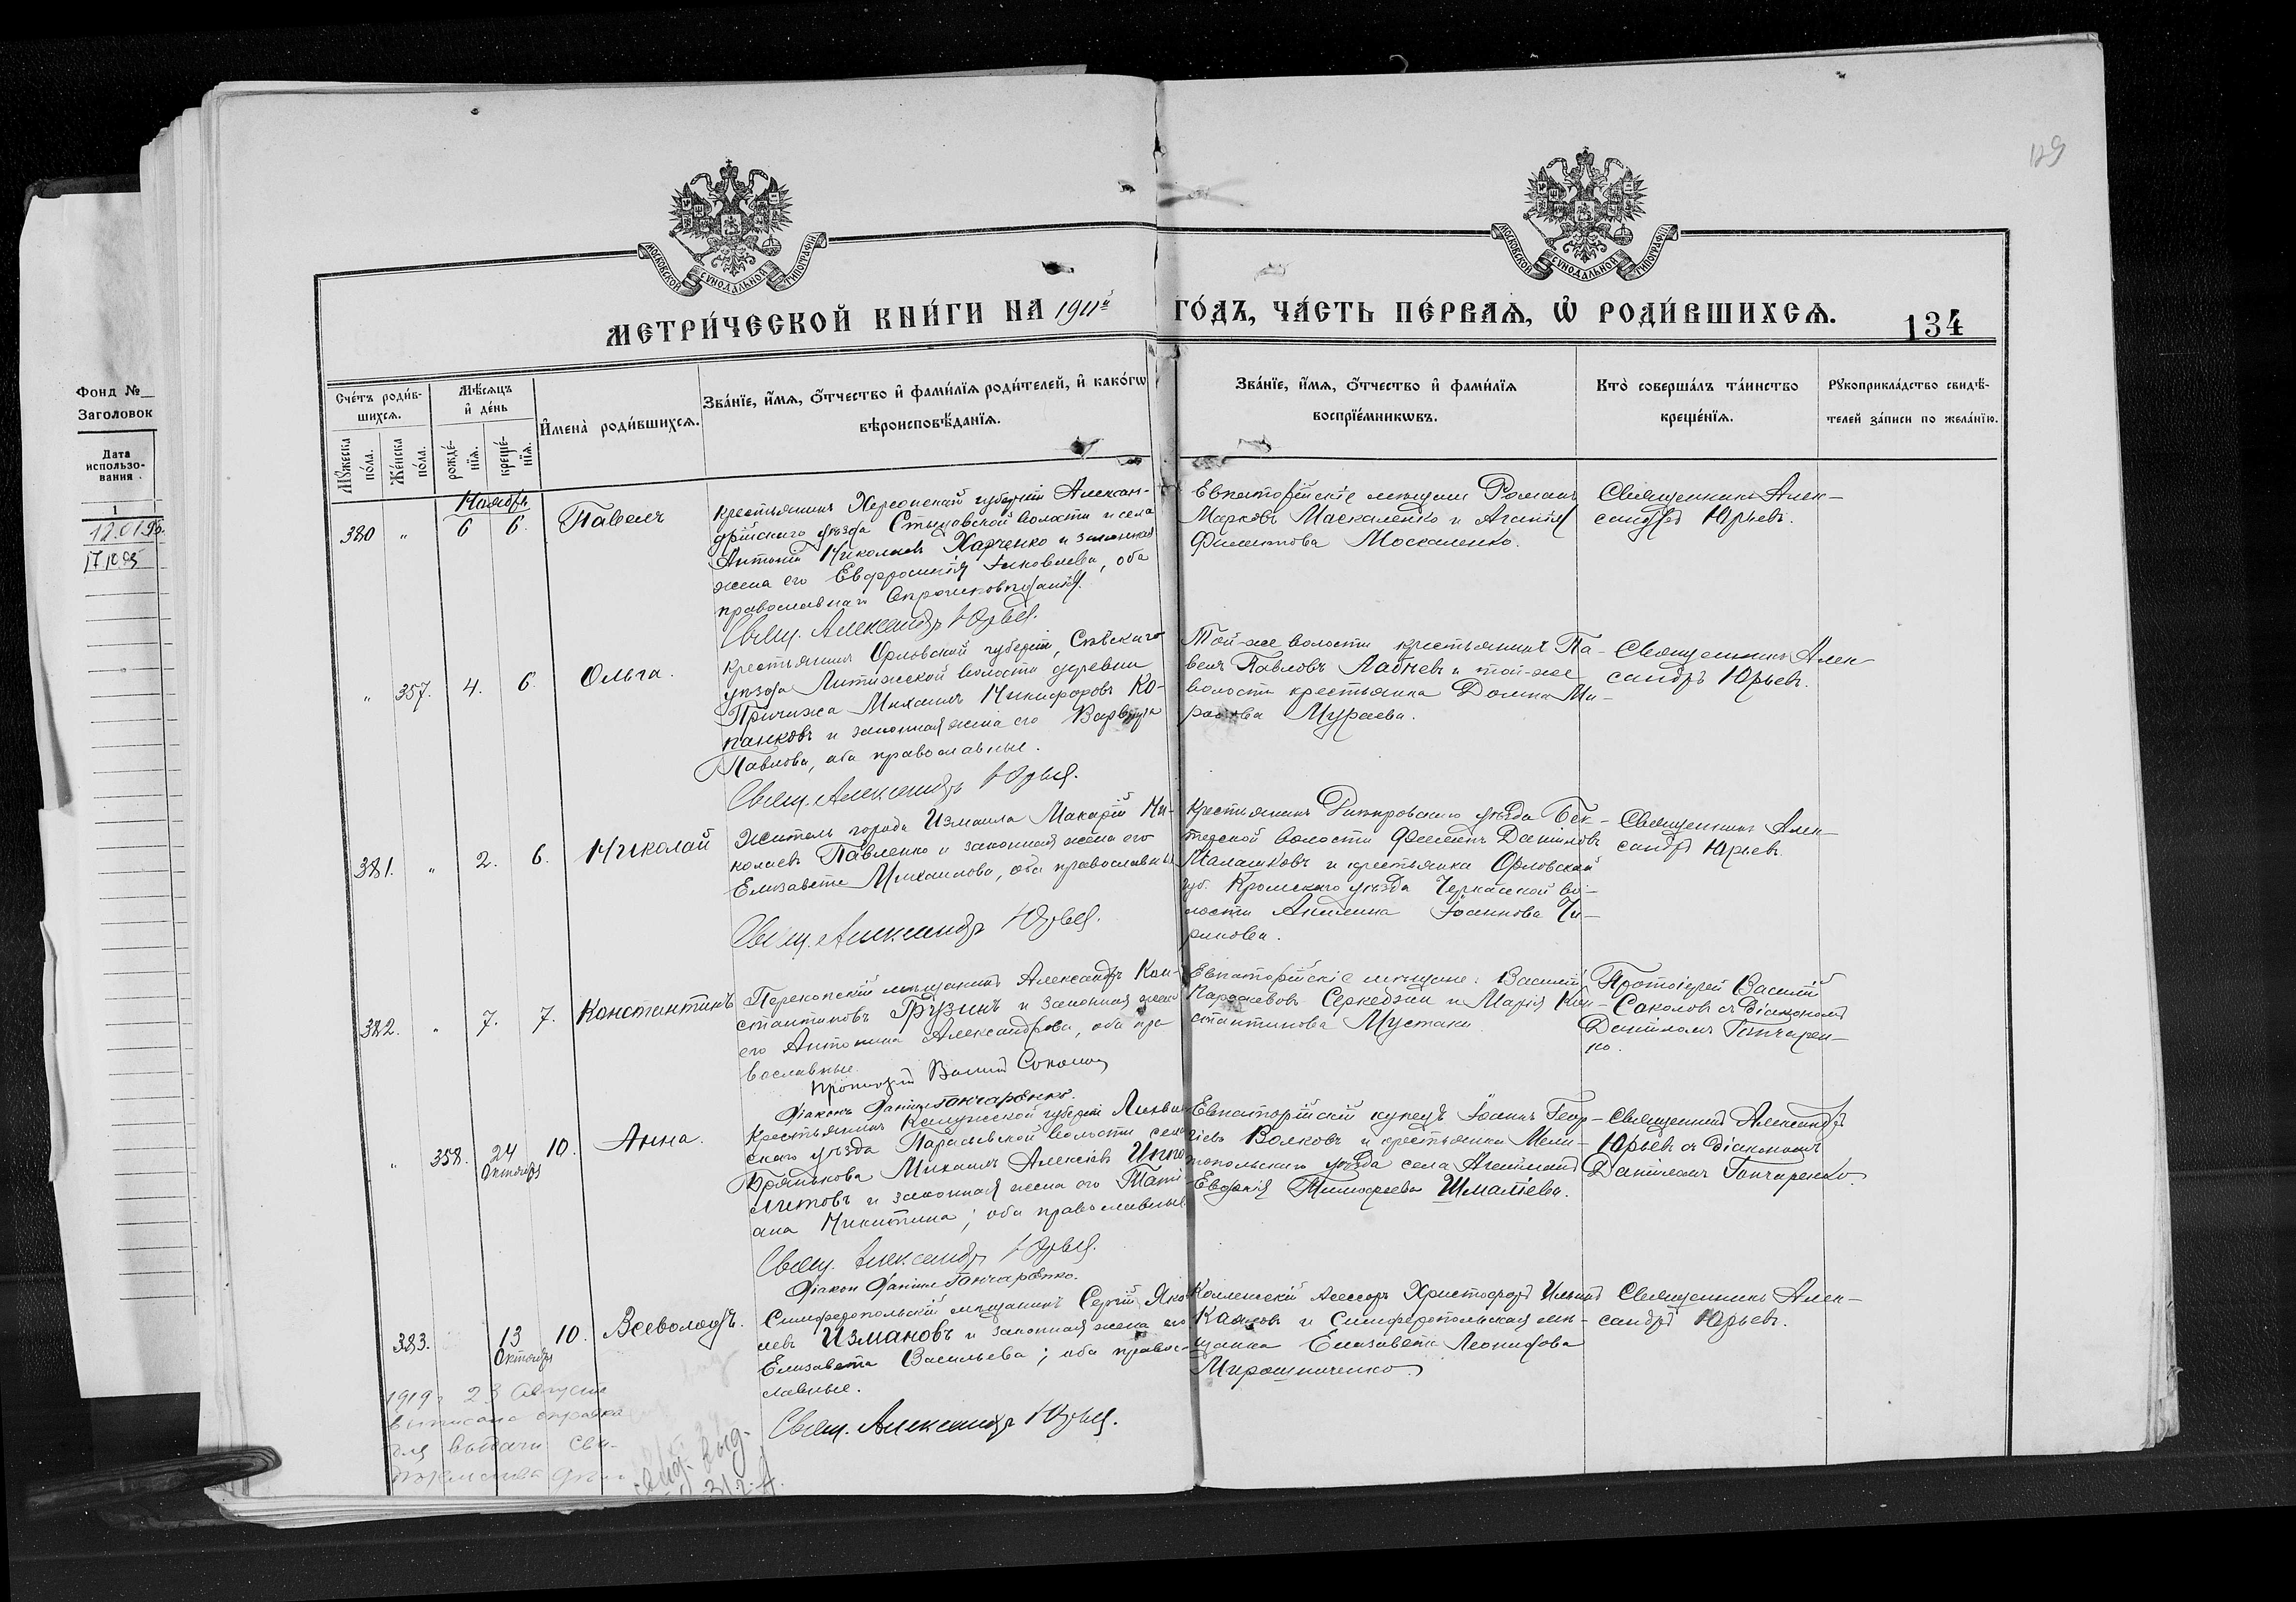 129
МОСКОВСКОЙ СѴНОДАЛЬНОЙ ТИПОГРАФІИ
МОСКОВСКОЙ СѴНОДАЛЬНОЙ ТИПОГРАФІИ
МЕТРИ́ЧЕСКОЙ КНИ́ГИ НА 1911й ГО́ДЪ, ЧА́СТЬ ПЕ́РВАѦ, Ѿ РОДИ́ВШИХСѦ.
134
Фонд №
Заголовок
Дата
использо-
вания
1
12.01.95.
17.10.95
Сче́тъ роди́в-
шихсѧ.
Мꙋ́жеска
по́ла.
Же́нска
по́ла.
Мѣ́сѧцъ
и҆ де́нь
рожде́-
нїѧ.
креще́-
нїѧ.
И҆мена̀ роди́вшихсѧ.
Зва́нїе, и҆́мѧ, ѻ҆́тчество и҆ фами́лїѧ роди́телей, и҆ како́гѡ
вѣроисповѣ́данїѧ.
Зва́нїе, и҆́мѧ, ѻ҆́тчество и҆ фами́лїѧ
воспрїе́мникѡвъ.
Кто̀ соверша́лъ та́инство
креще́нїѧ.
Рꙋкоприкла́дство свидѣ́-
телей за́писи по жела́нїю.
Ноябрь
380 " 6 6. Павелъ
Крестьянинъ Херсонской губерніи Алексан-
дрійскаго уѣзда волости и села
Антоній Николаевъ Харченко и законная
жена его Евфросинія Іаковлева, оба
православнаго вѣроисповѣданія.
Свящ. Александръ Юрьевъ.
Евпаторійскіе мѣщане Романъ
Марковъ Маскаленко и Агапія
Филиппова Москаленко.
Священникъ Алек-
сандръ Юрьевъ.
" 357. 4. 6. Ольга.
Крестьянинъ Орловской губерніи, Сѣвскаго
уѣзда Литижской волости деревни
Причижа Михаилъ Никифоровъ Ко-
панковъ и законная жена его Варвара
Павлова, оба православные.
Свящ. Александръ Юрьевъ.
Той-же волости крестьянинъ Па-
велъ Павловъ Лабневъ и той-же
волости крестьянка Домна Ми-
ронова Мураева.
Священникъ Алек
сандръ Юрьевъ.
381. " 2. 6. Николай
Житель города Измаила Макарій Ни-
колаевъ Павленко и законная жена его
Елизавета Михаилова, оба православные
Свящ. Александръ Юрьевъ.
Крестьянинъ Днѣпровскаго уѣзда Бек-
терской волости Филиппъ Даніиловъ
Малашковъ и крестьянка Орловской
губ. Кромскаго уѣзда волости Акилина Іоаннова Чи-
рикова.
Священникъ Алек-
сандръ Юрьевъ.
382. " 7. 7. Константинъ
Перекопскій мѣщанинъ Александръ Кон-
стантиновъ Грузинъ и законная жена
его Антонина Александрова, оба пра-
вославные.
Протоіерей Василій Соколовъ
Діаконъ Даніилъ Гончаренко.
Евпаторійскіе мѣщане: Василій
Параскевовъ Серкеджи и Марія Кон-
стантинова Мустаки
Протоіерей Василій
Соколовъ съ діакономъ
Даніиломъ Гончарен-
ко.
" 358. 24 10. Анна.
Октября
Крестьянинъ Калужской губерніи Лихвин-
скаго уѣзда волости села
Михаилъ Алексіевъ Иппо
литовъ и законная жена его Тати
ана Никитина; оба православные
Свящ. Александръ Юрьевъ.
Діакон Даніилъ Гончаренко.
Евпаторійскій купецъ Іоаннъ Геор-
гіевъ Волковъ и крестьянка Мели-
топольскаго уѣзда села Агаймана
Евфимія Тимофеева Шмалієва.
Священникъ Александръ
Юрьевъ съ діакономъ
Даніиломъ Гончаренко.
383. 13 10. Всеволодъ.
Октября
Симферопольскій мѣщанинъ Сергій Яков
левъ Измановъ и законная жена его
Елизавета Васильева; оба право-
славные.
Свящ. Александръ Юрьевъ.
Коллежскій Асессоръ Христофоръ Ильинъ
и Симферопольская мѣ-
щанка Елизавета Леонидова
Мирошниченко.
Священникъ Алек-
сандръ Юрьевъ.
1919 г 23 Августа
выписана справка
для выдачи сви-